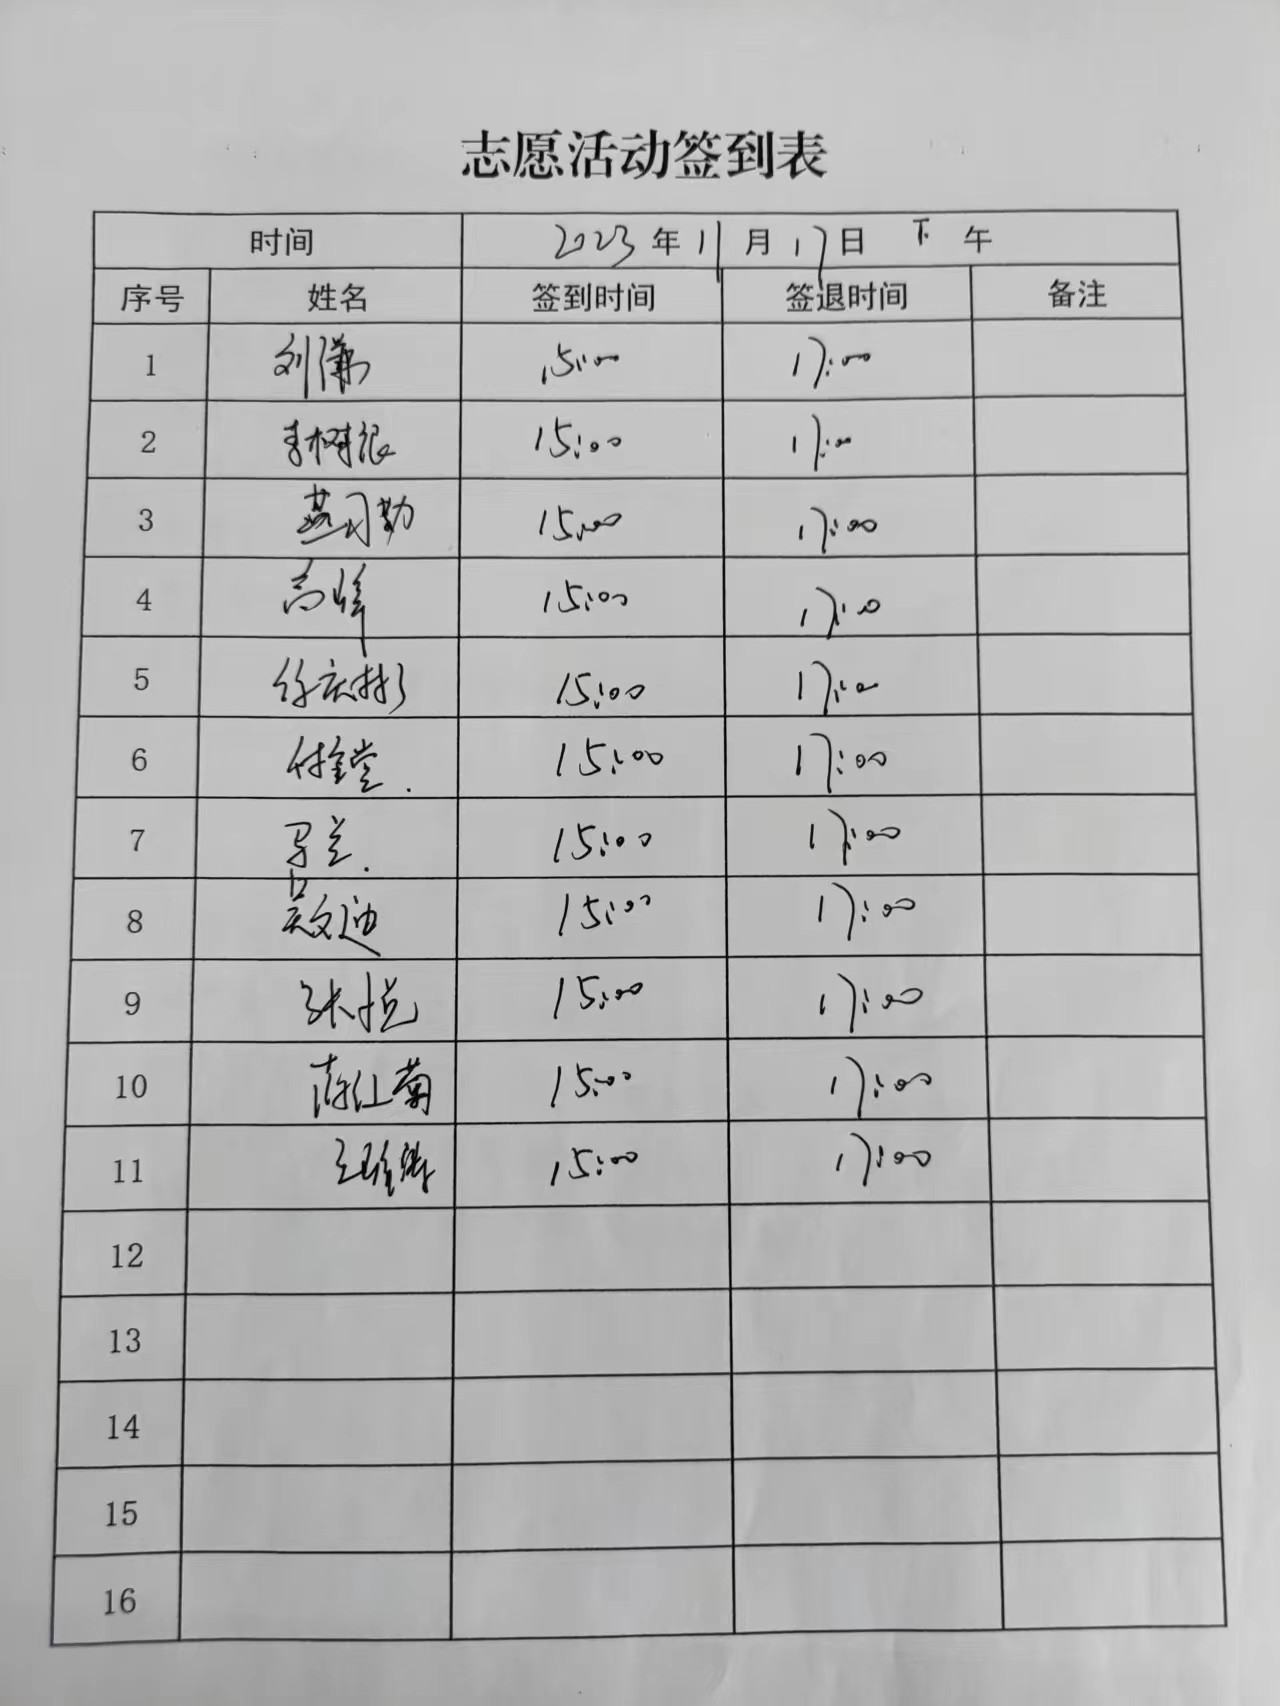 志愿活动签到表
时间 2023年11月17日 下午
序号 姓名 签到时间 签退时间 备注
1 刘谦 15:00 17:00
2 李树银 15:00 17:00
3 燕习勤 15:00 17:00
4 高峰 15:00 17:00
5 徐庆彬 15:00 17:00
6 付金堂 15:00 17:00
7 马兰 15:00 17:00
8 吴文迪 15:00 17:00
9 张悦 15:00 17:00
10 陈红菊 15:00 17:00
11 王 15:00 17:00
12
13
14
15
16